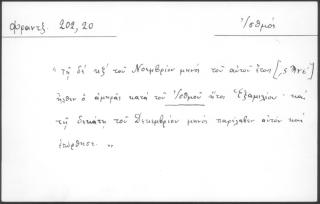 Φραντζ. 202, 20
Ἰσθμός
"τῇ δὲ κξ' τοῦ Νοεμβρίου μηνὸς τοῦ αὐτοῦ ἔτους
ἦλθεν ὁ ἀμηρᾶς κατὰ τοῦ Ἰσθμοῦ ἤτοι Ἑξαμιλίου· καὶ
τῇ δεκάτῃ τοῦ Δεκεμβρίου μηνὸς παρέλαβεν αὐτὸν καὶ
"